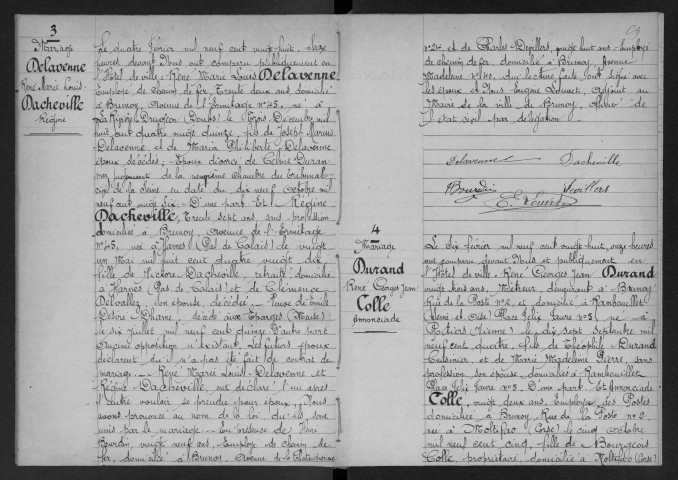 3
Mariage
Delavenne
René Marie Louis
Dacheville
Régine
Le quatre février mil neuf cent vingt-huit, onze
heures, devant Nous ont comparu publiquement en
l'Hôtel de ville: René Marie Louis Delavenne
Employé de chemin de fer, Trente deux ans, domicilié
à Brunoy, avenue de l'Ermitage n°45, né à
La Rivière Drugeon (Doubs) le trois Décembre mil
huit cent quatre vingt quinze, fils de Joseph Marius
Delavenne et de Marie Philiberte Delavenne
époux décédés; Époux divorcé de Céline Duran
par jugement de la neuvième chambre du tribunal
civil de la Seine en date du dix neuf octobre mil
neuf cent vingt six. D'une part Et Régine
Dacheville, Trente sept ans, sans profession
domiciliée à Brunoy, avenue de l'Ermitage
n°45, née à Harnes (Pas de Calais) le vingt
un Mai mil huit cent quatre vingt dix,
fille de Dacheville, retraité, domicilié
à Harnes (Pas de Calais) et de Clémence
Delvallez son épouse, décédée. Veuve de Emile
Désiré décédé aux Eparges (Meuse)
le six juillet mil neuf cent quinze. D'autre part
Aucune opposition n'existant. Les futurs époux
déclarent qu'il n'a pas été fait de contrat de
mariage. René Marie Louis Delavenne et
Régine Dacheville, ont déclaré l'un après
l'autre vouloir se prendre pour époux, Nous
avons prononcé au nom de la loi qu'ils sont
unis par le mariage. En présence de
Bourdin, vingt neuf ans, Employé de chemin de
fer, domicilié à Brunoy, avenue de la
et de Charles Devillers, huit ans, Employé
de chemin de fer domicilié à Brunoy, avenue
Madeleine n°40, qui, lecture faite, ont signé avec
les époux et Nous Eugène Adjoint au
Maire de la ville de Brunoy, officier de
l'état civil par délégation.
Delavenne Dacheville
Bourdin Devillers
4
Mariage
Durand
René Georges Jean
Colle
Annonciade
Le dix février mil neuf cent vingt-huit, onze heures
ont comparu devant Nous et publiquement en
l'Hôtel de ville: René Georges Jean Durand
vingt trois ans, demeurant à Brunoy
Rue de la Poste n°2, et domicilié à Rambouillet
(Seine-et-Oise) Place Félix Faure n°3, né à
Poitiers (Vienne) le dix sept septembre mil
neuf cent quatre, fils de Théophile Durand
Cuisinier et de Marie Madeleine Pierre, sans
profession, son épouse, domiciliés à Rambouillet
Place Félix Faure n°3. D'une part. Et Annonciade
Colle, vingt deux ans, Employée des Postes
domiciliée à Brunoy, Rue de la Poste n°2,
née à Moltifao (Corse) le cinq octobre
mil neuf cent cinq, fille de Bourgeois
Colle, propriétaire, domicilié à Moltifao (Corse)